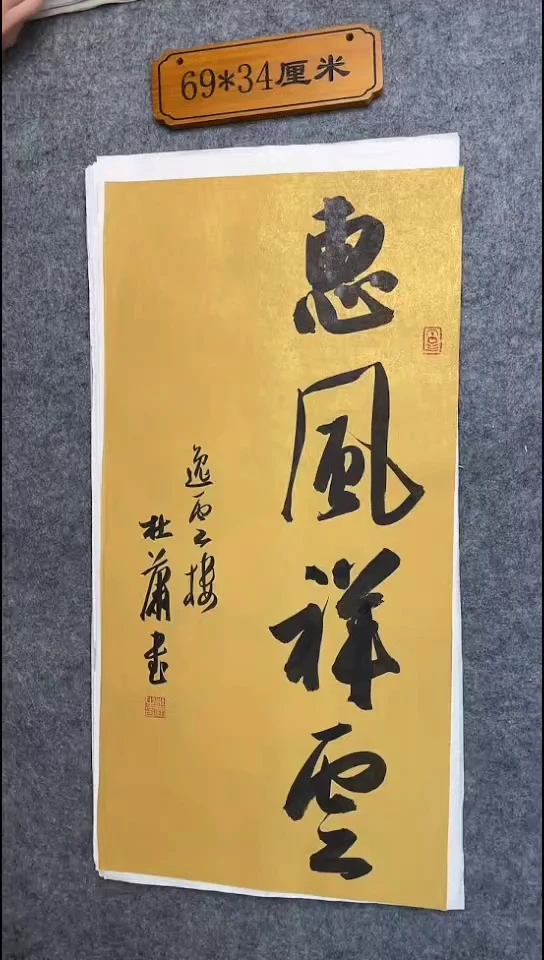 69*34厘米
惠風祥雲
逸雲樓
杜蕭書